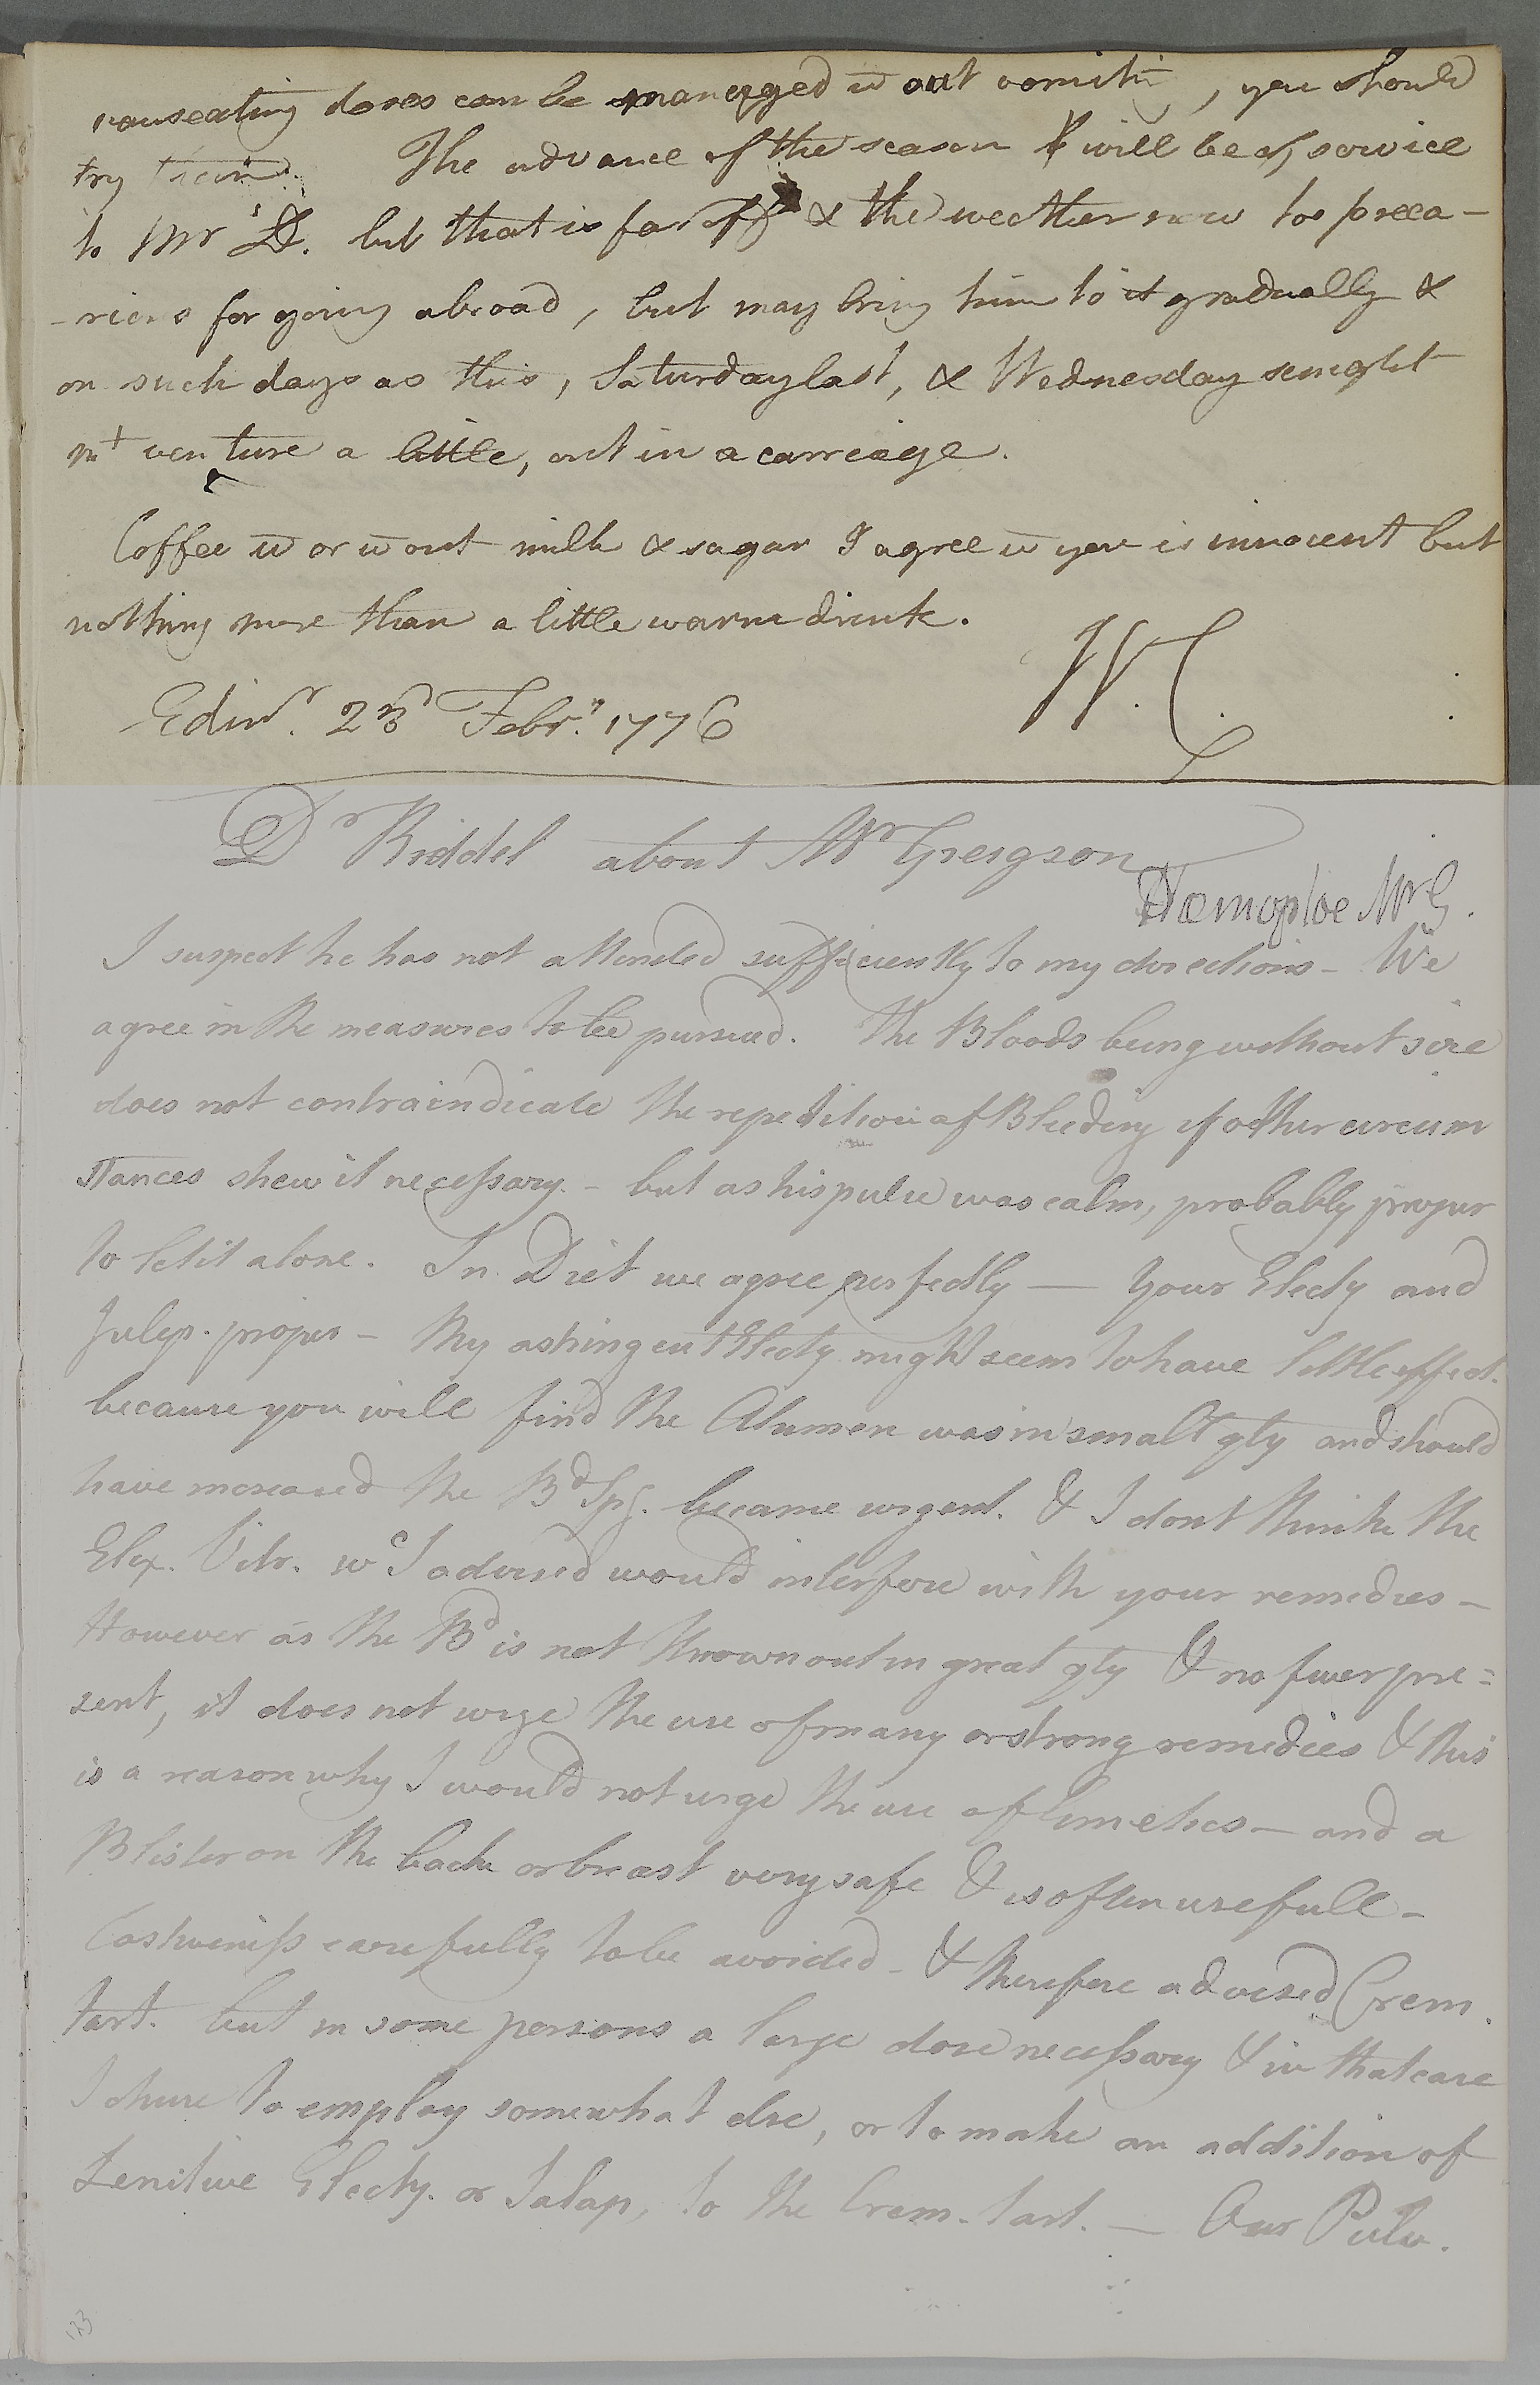 nauseating doses can be managed w̄ out vomitḡ, you should
try them. The advance of the season will be of service
to Mr. D. but that is far off & the weather now too preca-
-rious for going abroad, but may bring him to it gradually &
on such days as this, Saturday last, & Wednesday senight
mt venture a little, out in a carriage.
Coffee w̄ or w̄ out milk & sugar I agree w̄ you is innocent but
nothing more than a little warm drink.
W.C.
Edinr. 23d Febry. 1776
Dr Riddel about Mr Grergson
Hæmoptoe Mr G.
I suspect he has not attended sufficiently to my directions - We
agree in the measures to be pursued. The Bloods being without size
does not contraindicate the repetition of Bleeding if other circum
stances shew it necessary. - but as his pulse was calm, probably proper
to let it alone. In Diet we agree perfectly — Your Electy and
Julep. proper - My astringent Electy might seem to have little effect.
because you will find the Alumen was in small qty and should
have increased the Bd Spg. became urgent. & I dont think the
Elix. Vitr. wc I advised would interfere with your remedies -
However as the Bd is not thrown out in great qty & no fever pre=
sent, it does not urge the use of many or strong remedies & this
is a reason why I would not urge the use of Emetics - and a
Blister on the back or breast very safe & is often usefull -
Costiveness carefully to be avoided - & therefore advised Crem.
tart. but in some persons a large dose necessary & in that case
I chuse to employ somewhat else, or to make an addition of
Lenitive Electy. or Jalap, to the Crem. tart. — Our Pulv.
123